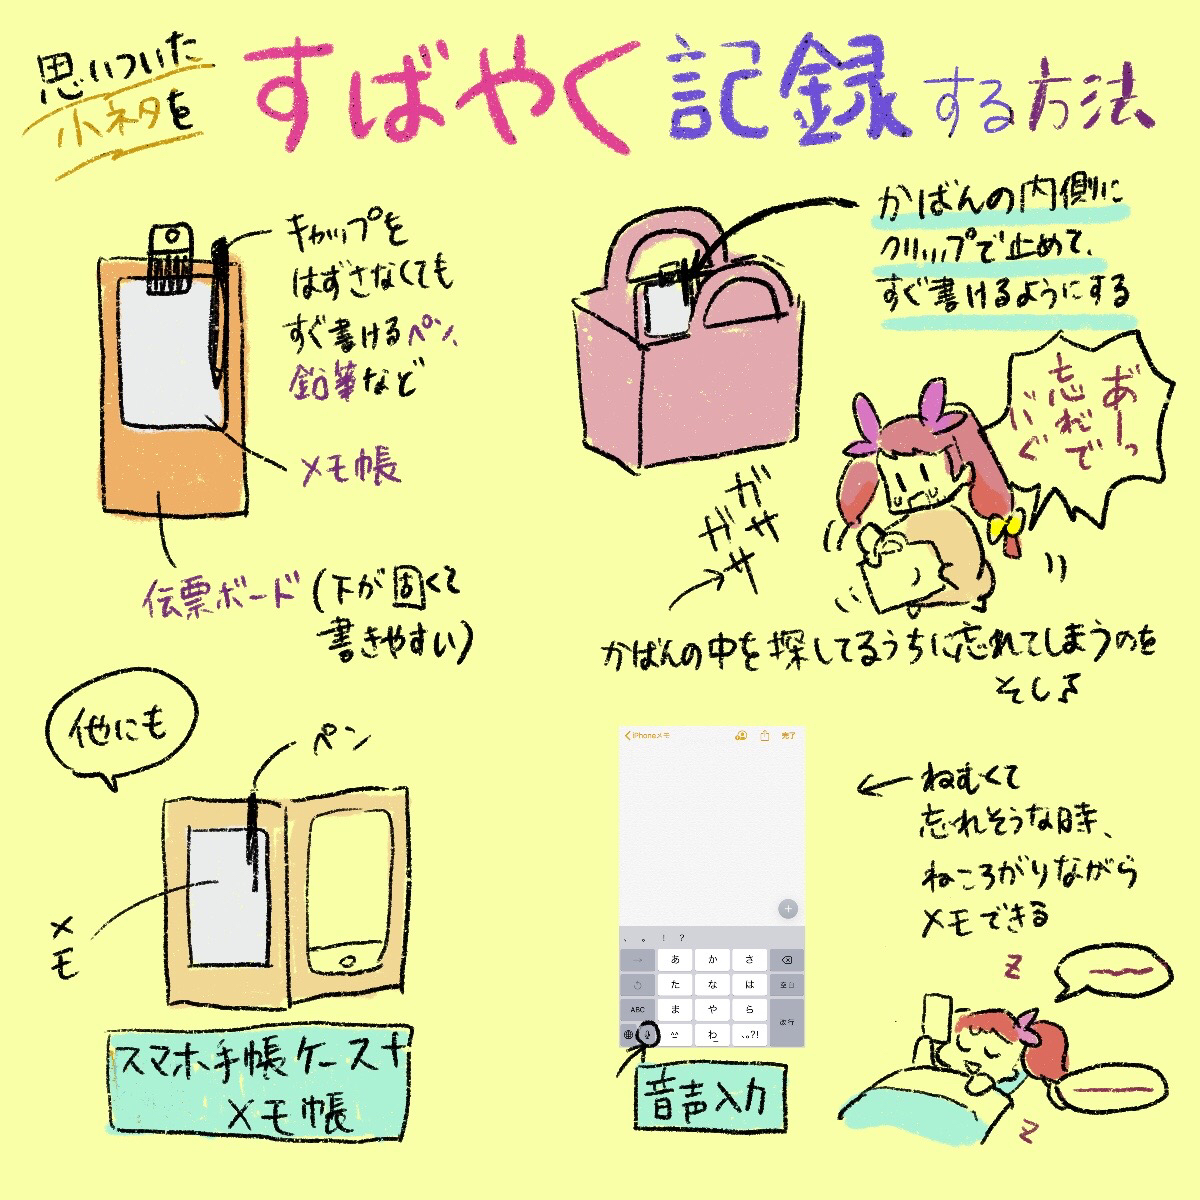 思いついた
小ネタを
すばやく記録する方法
キャップを
はずさなくても
すぐ書けるペン、
鉛筆など
メモ帳
伝票ボード(下が固くて
書きやすい)
かばんの内側に
クリップで止めて、
すぐ書けるようにする
あーっ
忘れて
いく
ガサ
ガサ
かばんの中を探してるうちに忘れてしまうのを
そし
他にも
ペン
メモ
スマホ手帳ケース+
メモ帳
iPhoneメモ
完了
、 。 ! ?
→ あ か さ
た な は 空白
ABC ま や ら
^^ わ 、。?! 改行
音声入力
← ねむくて
忘れそうな時、
ねころがりながら
メモできる
z
z